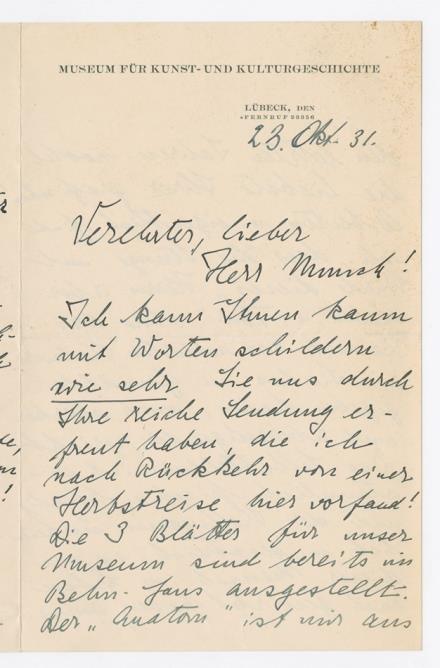 MUSEUM FÜR KUNST- UND KULTURGESCHICHTE
LÜBECK, DEN
23. Okt. 31.
Verehrter, lieber
Herr Munch!
Ich kann Ihnen kaum
mit Worten schildern
wie sehr Sie uns durch
Ihre reiche Sendung er-
freut haben, die ich
nach Rückkehr von einer
Herbstreise hier vorfand!
Die 3 Blätter für unser
Museum sind bereits im
Behn-Haus ausgestellt.
Der „Anatom“ ist mir aus